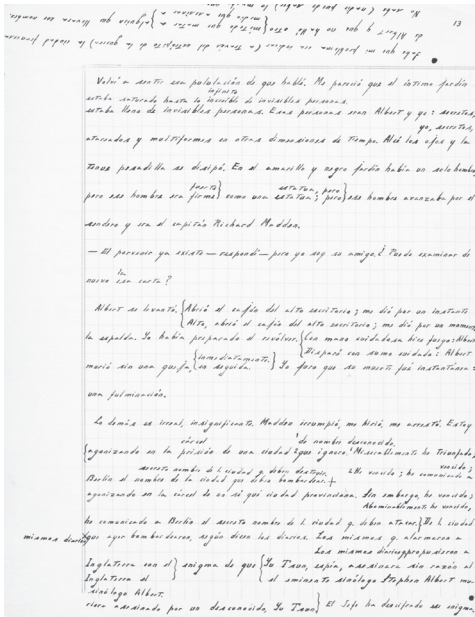 13
Volví a sentir esa pululación de que hablé. Me pareció que el íntimo jardín
infinito
estaba saturado hasta lo increíble de invisibles personas.
estaba lleno de invisibles personas. Esas personas eran Albert y yo: secretos,
yo, secretos,
atareados y multiformes en otras dimensiones de tiempo. Alcé los ojos y la
tenue pesadilla se disipó. En el amarillo y negro jardín había un solo hombre
fuerte} estatua, pero}
pero ese hombre era firme} como una estatua; pero} ese hombre avanzaba por el
sendero y era el capitán Richard Madden.
— El porvenir ya existe — respondí — pero yo soy su amigo. ¿Puedo examinar de
la
nuevo esa carta?
Albert se levantó. {Abrió el cajón del alto escritorio; me dió por un instante
Alto, abrió el cajón del alto escritorio; me dió por un momento
la espalda. Yo había preparado el revólver. {Con mano cuidadosa hice fuego: Albert
Disparé con sumo cuidado: Albert
{inmediatamente.}
murió sin una queja, {en seguida. } Yo juro que su muerte fué instantánea:
una fulminación.
Lo demás es irreal, insignificante. Madden irrumpió, me hirió, me arrestó. Estoy
cárcel de nombre desconocido.
{agonizando en la prisión de una ciudad que ignoro. Miserablemente he triunfado,
secreto nombre de l. ciudad q. deben destruir. vencido;
He vencido; he comunicado a
Berlín el nombre de la ciudad que debía bombardear. +
agonizando en la cárcel de no sé qué ciudad provinciana. Sin embargo, he vencido;
Abominablemente he vencido,
he comunicado a Berlín el secreto nombre de l. ciudad q. deben atacar. {De l. ciudad
mismos diarios que ayer bombardearon, según dicen los diarios. Los mismos q. alarmaron a
Los mismos diarios propusieron a
Inglaterra con el } enigma de que {Yu Tsun, espía, asesinara sin razón al
Inglaterra el } el eminente sinólogo Stephen Albert mu
sinólogo Albert.
riera asesinado por un desconocido, Yu Tsun} El Jefe ha descifrado ese enigma.